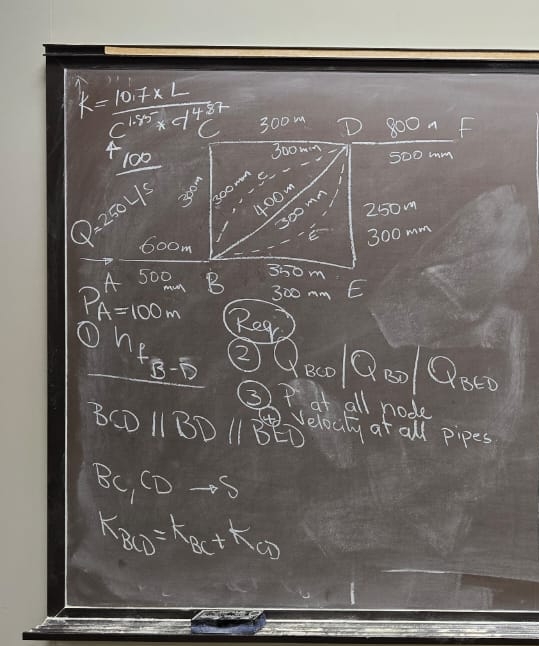 K = 10.7 × L / C^1.85 * d^4.87
↑
100
C 300 m D 800 m F
300 mm 500 mm
Q = 250 L/s
300 m 300 mm c
400 m
300 mm
250 m
300 mm
E'
600 m
A 500 mm B 350 m E
300 mm
P_A = 100 m
Req.
① h_f B-D
② Q_BCD | Q_BD | Q_BED
③ P at all node
④ Velocity at all pipes
BCD || BD || BED
BC, CD → S
K_BCD = K_BC + K_CD